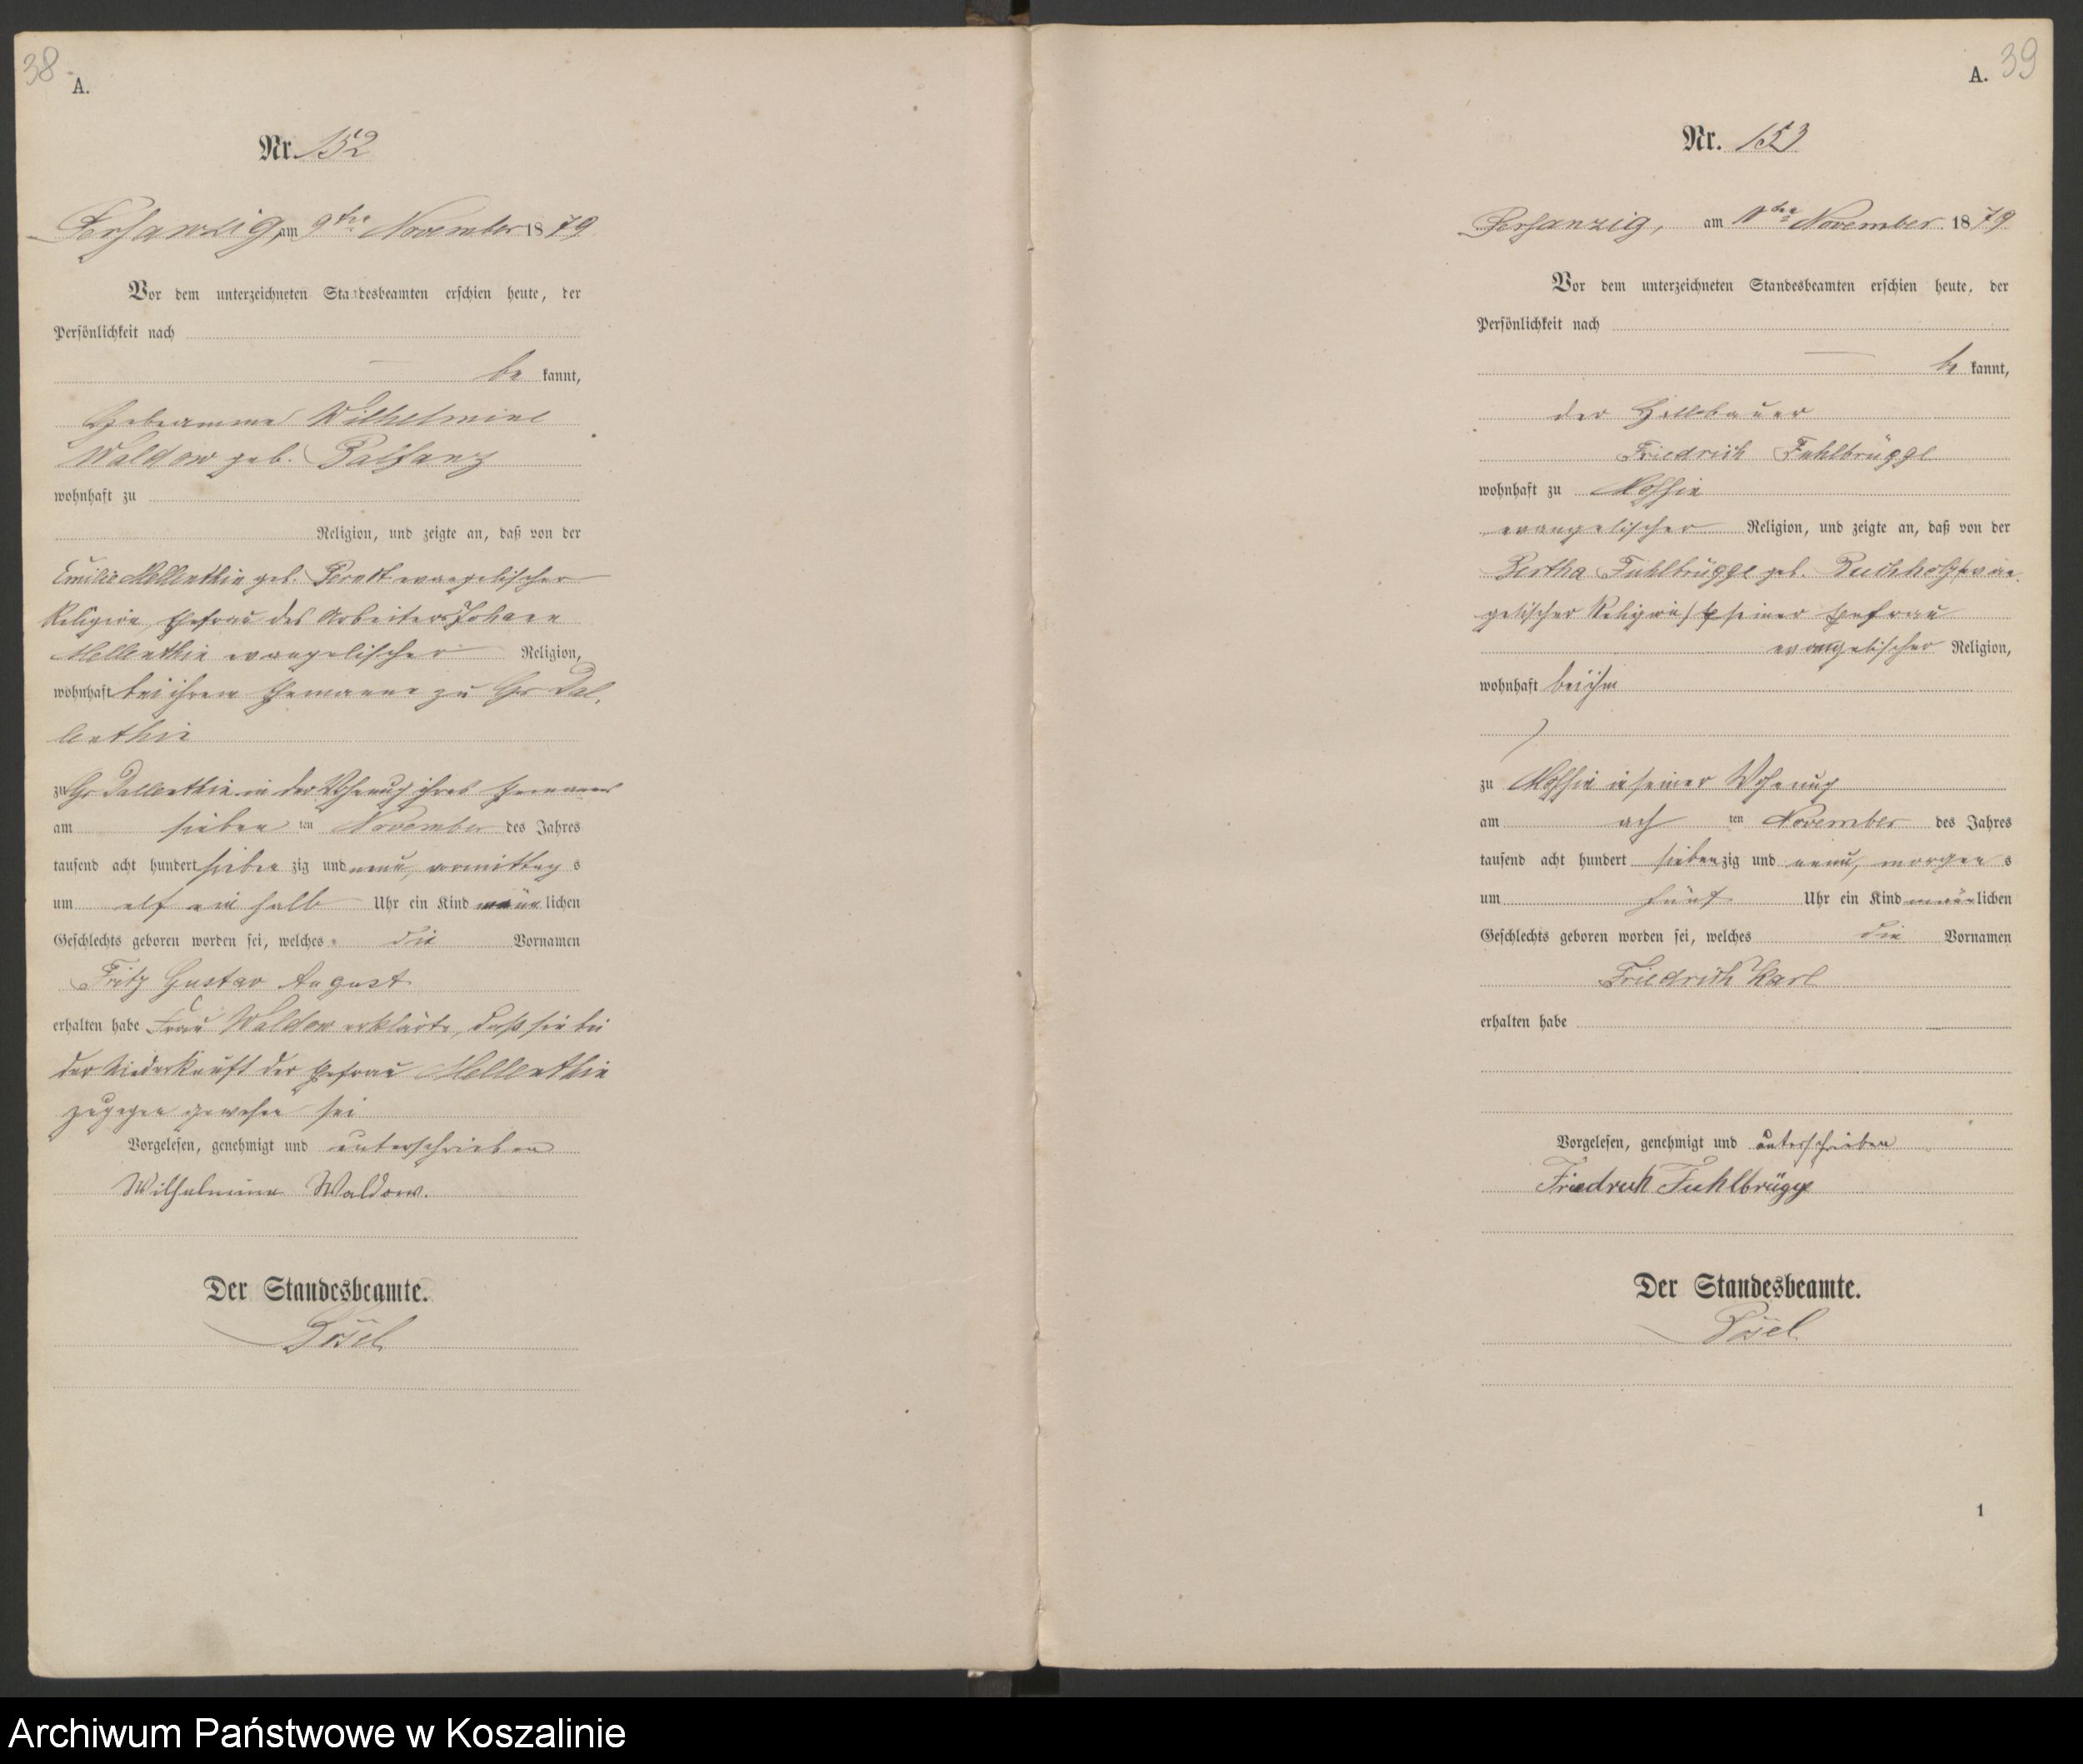 38
A.
Nr. 152
Persanzig, am 9ten November 1879
Vor dem unterzeichneten Standesbeamten erschien heute, der
Persönlichkeit nach
be kannt,
Hebeamme Wilhelmine
Waldow geb. Palfanz
wohnhaft zu
Religion, und zeigte an, daß von der
Emilie Mellenthin geb. evangelischer
Religion, Ehefrau des Arbeiters Johann
Mellenthin evangelischer Religion,
wohnhaft bei ihrem Ehemanne zu Gr Dal,
lenthin
zu Gr Dallenthin in der Wohnung ihres Ehemannes
am sieben ten November des Jahres
tausend acht hundert sieben zig und neun, vormittag s
um elf ein halb Uhr ein Kind männ lichen
Geschlechts geboren worden sei, welches die Vornamen
Fritz Gustav August
erhalten habe Frau Waldow erklärte, daß sie bei
der Niederkunft der Ehefrau Mellenthin
zugegen gewesen sei
Vorgelesen, genehmigt und unterschrieben
Wilhelmine Waldow.
Der Standesbeamte.
A. 39
Nr. 153
Persanzig, am November 1879
Vor dem unterzeichneten Standesbeamten erschien heute, der
Persönlichkeit nach
be kannt,
der
Friedrich Fuhlbrügge
wohnhaft zu Mossin
evangelischer Religion, und zeigte an, daß von der
Bertha Fuhlbrügge geb. Buchholz (evan
gelischer Religion) seiner Ehefrau
evangelischer Religion,
wohnhaft bei ihm
zu Mossin in seiner Wohnung
am ach ten November des Jahres
tausend acht hundert sieben zig und neun, morgen s
um fünf Uhr ein Kind männ lichen
Geschlechts geboren worden sei, welches die Vornamen
Friedrich Karl
erhalten habe
Vorgelesen, genehmigt und unterschrieben
Friedrich Fuhlbrügge
Der Standesbeamte.
1
Archiwum Państwowe w Koszalinie